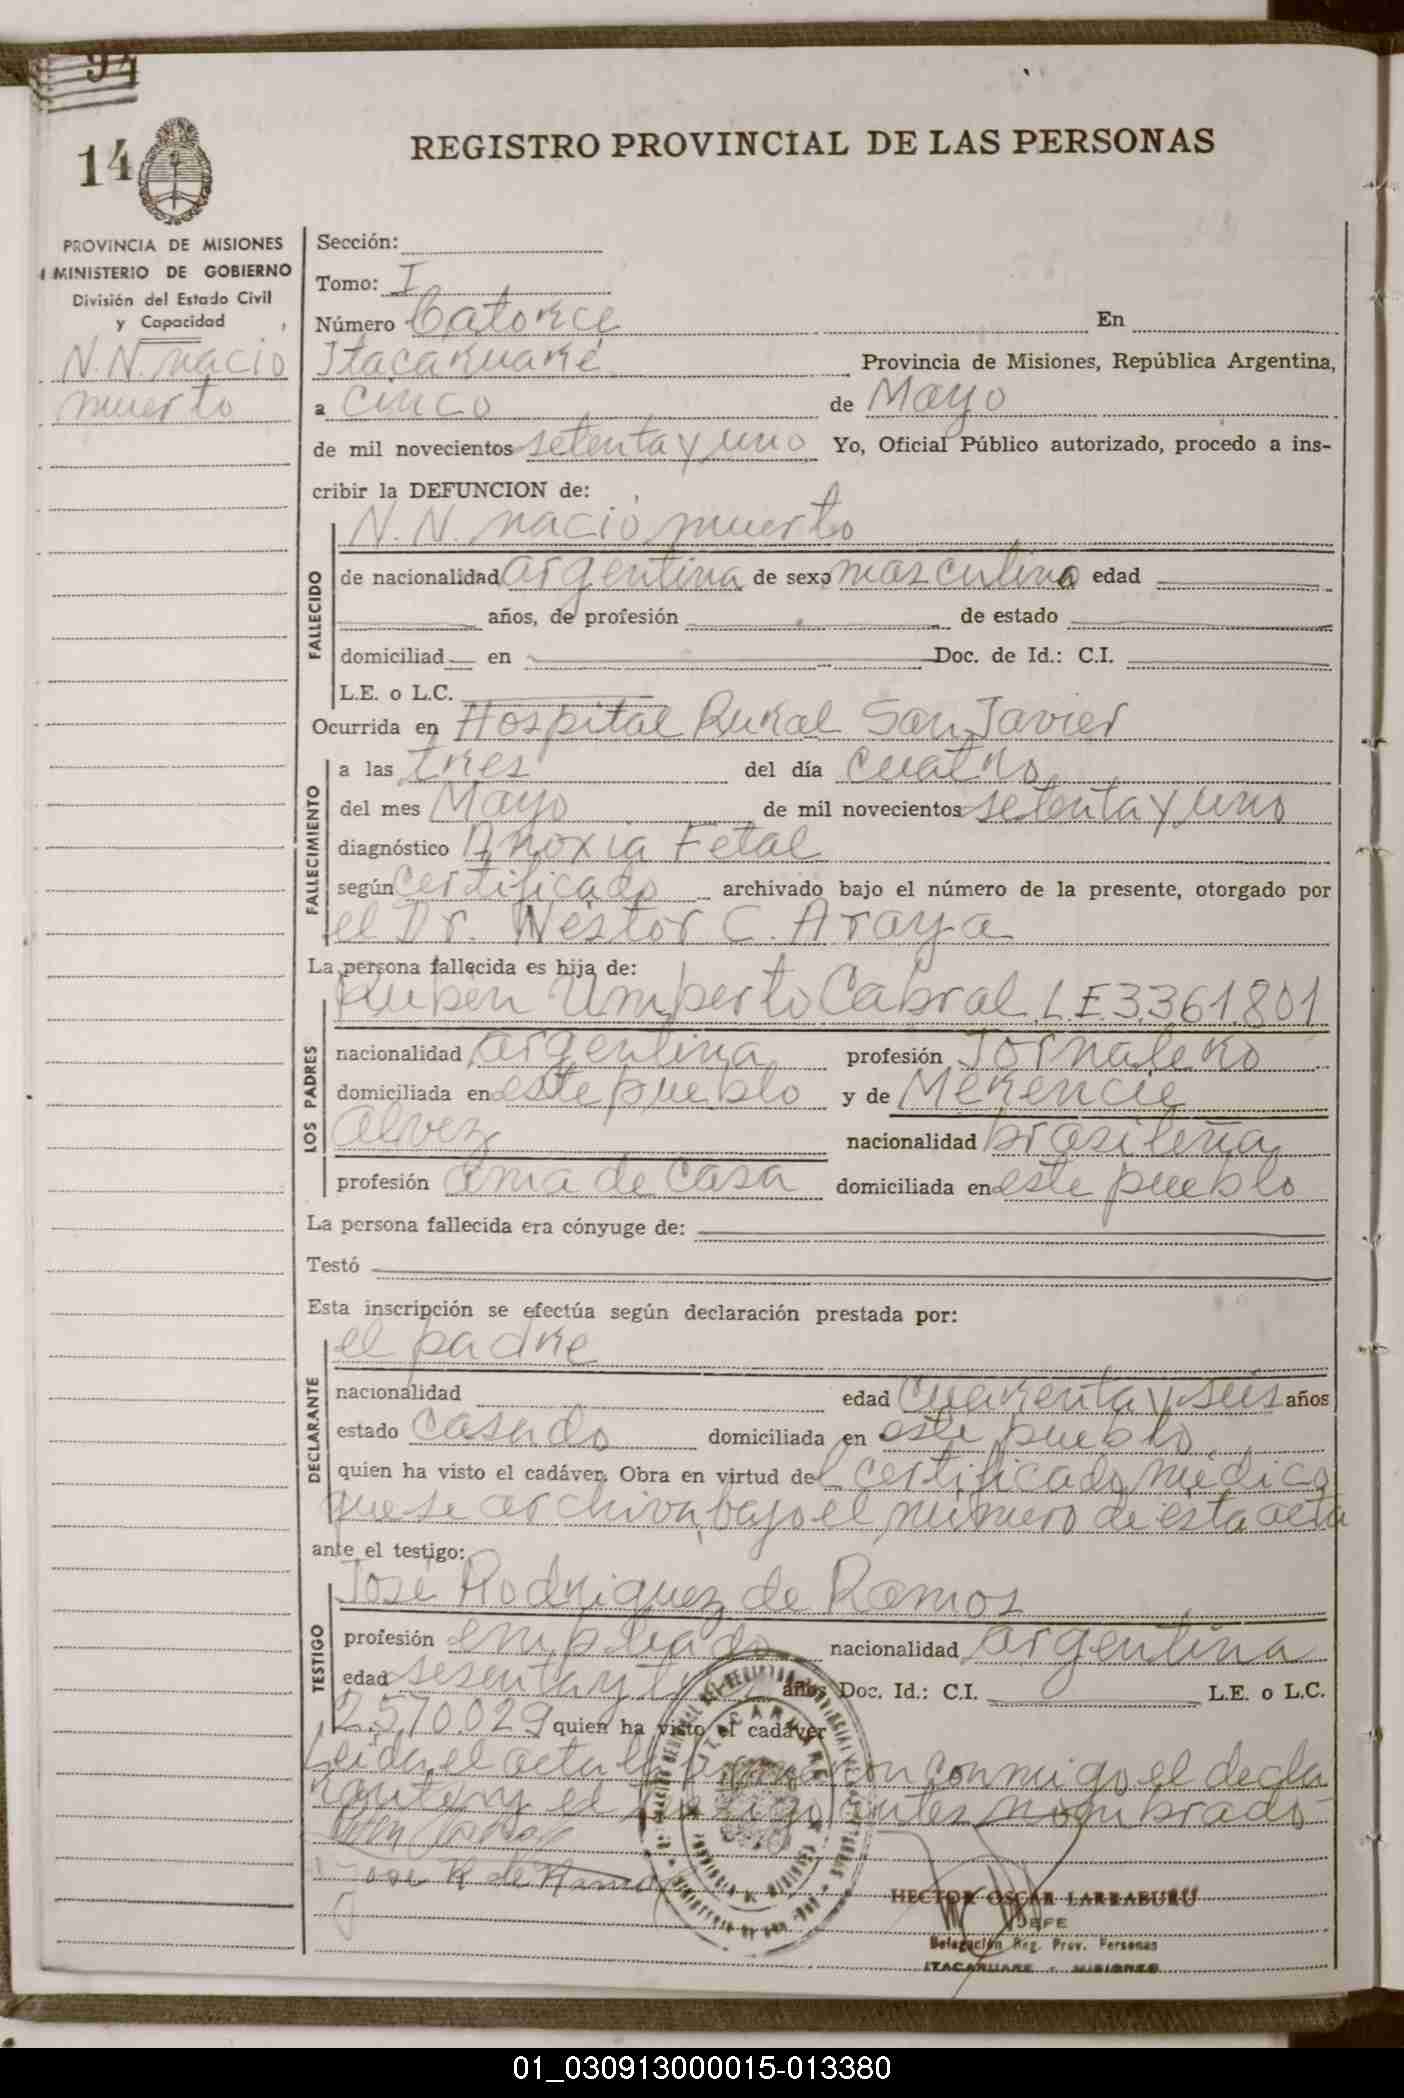 94
14
REGISTRO PROVINCIAL DE LAS PERSONAS
PROVINCIA DE MISIONES
MINISTERIO DE GOBIERNO
División del Estado Civil
y Capacidad
N.N. nacio
muerto
Sección:
Tomo: I
Número Catorce En
Itacaruaré Provincia de Misiones, República Argentina,
a cinco de Mayo
de mil novecientos setenta y uno Yo, Oficial Público autorizado, procedo a ins-
cribir la DEFUNCION de:
N.N. nacio muerto
FALLECIDO
de nacionalidad argentina de sexo masculino edad
años, de profesión de estado
domiciliad en Doc. de Id.: C.I.
L.E. o L.C.
Ocurrida en Hospital Rural San Javier
FALLECIMIENTO
a las tres del día cuatro
del mes Mayo de mil novecientos setenta y uno
diagnóstico Anoxia Fetal
según certificado archivado bajo el número de la presente, otorgado por
el Dr. Nestor C. Araya
La persona fallecida es hija de:
Ruben Umberto Cabral L.E. 3.361.801
LOS PADRES
nacionalidad argentina profesión Jornalero
domiciliada en este pueblo y de Merencie
Alvez nacionalidad brasileña
profesión ama de casa domiciliada en este pueblo
La persona fallecida era cónyuge de:
Testó
Esta inscripción se efectúa según declaración prestada por:
el padre
DECLARANTE
nacionalidad edad cuarenta y seis años
estado casado domiciliada en este pueblo
quien ha visto el cadáver. Obra en virtud del certificado médico
que se archiva bajo el numero de esta acta
ante el testigo:
José Rodriguez de Ramos
TESTIGO
profesión empleado nacionalidad argentina
edad sesenta y años Doc. Id.: C.I. L.E. o L.C.
2.570.029 quien ha visto el cadáver
Leida el acta la firmaron conmigo el decla
rante y el testigo antes nombrado
Jose R de Ramos
ITACARUARE
PROVINCIA DE MISIONES
HECTOR OSCAR LARRABURU
JEFE
Delegación Reg. Prov. Personas
ITACARUARE - MISIONES
01_030913000015-013380